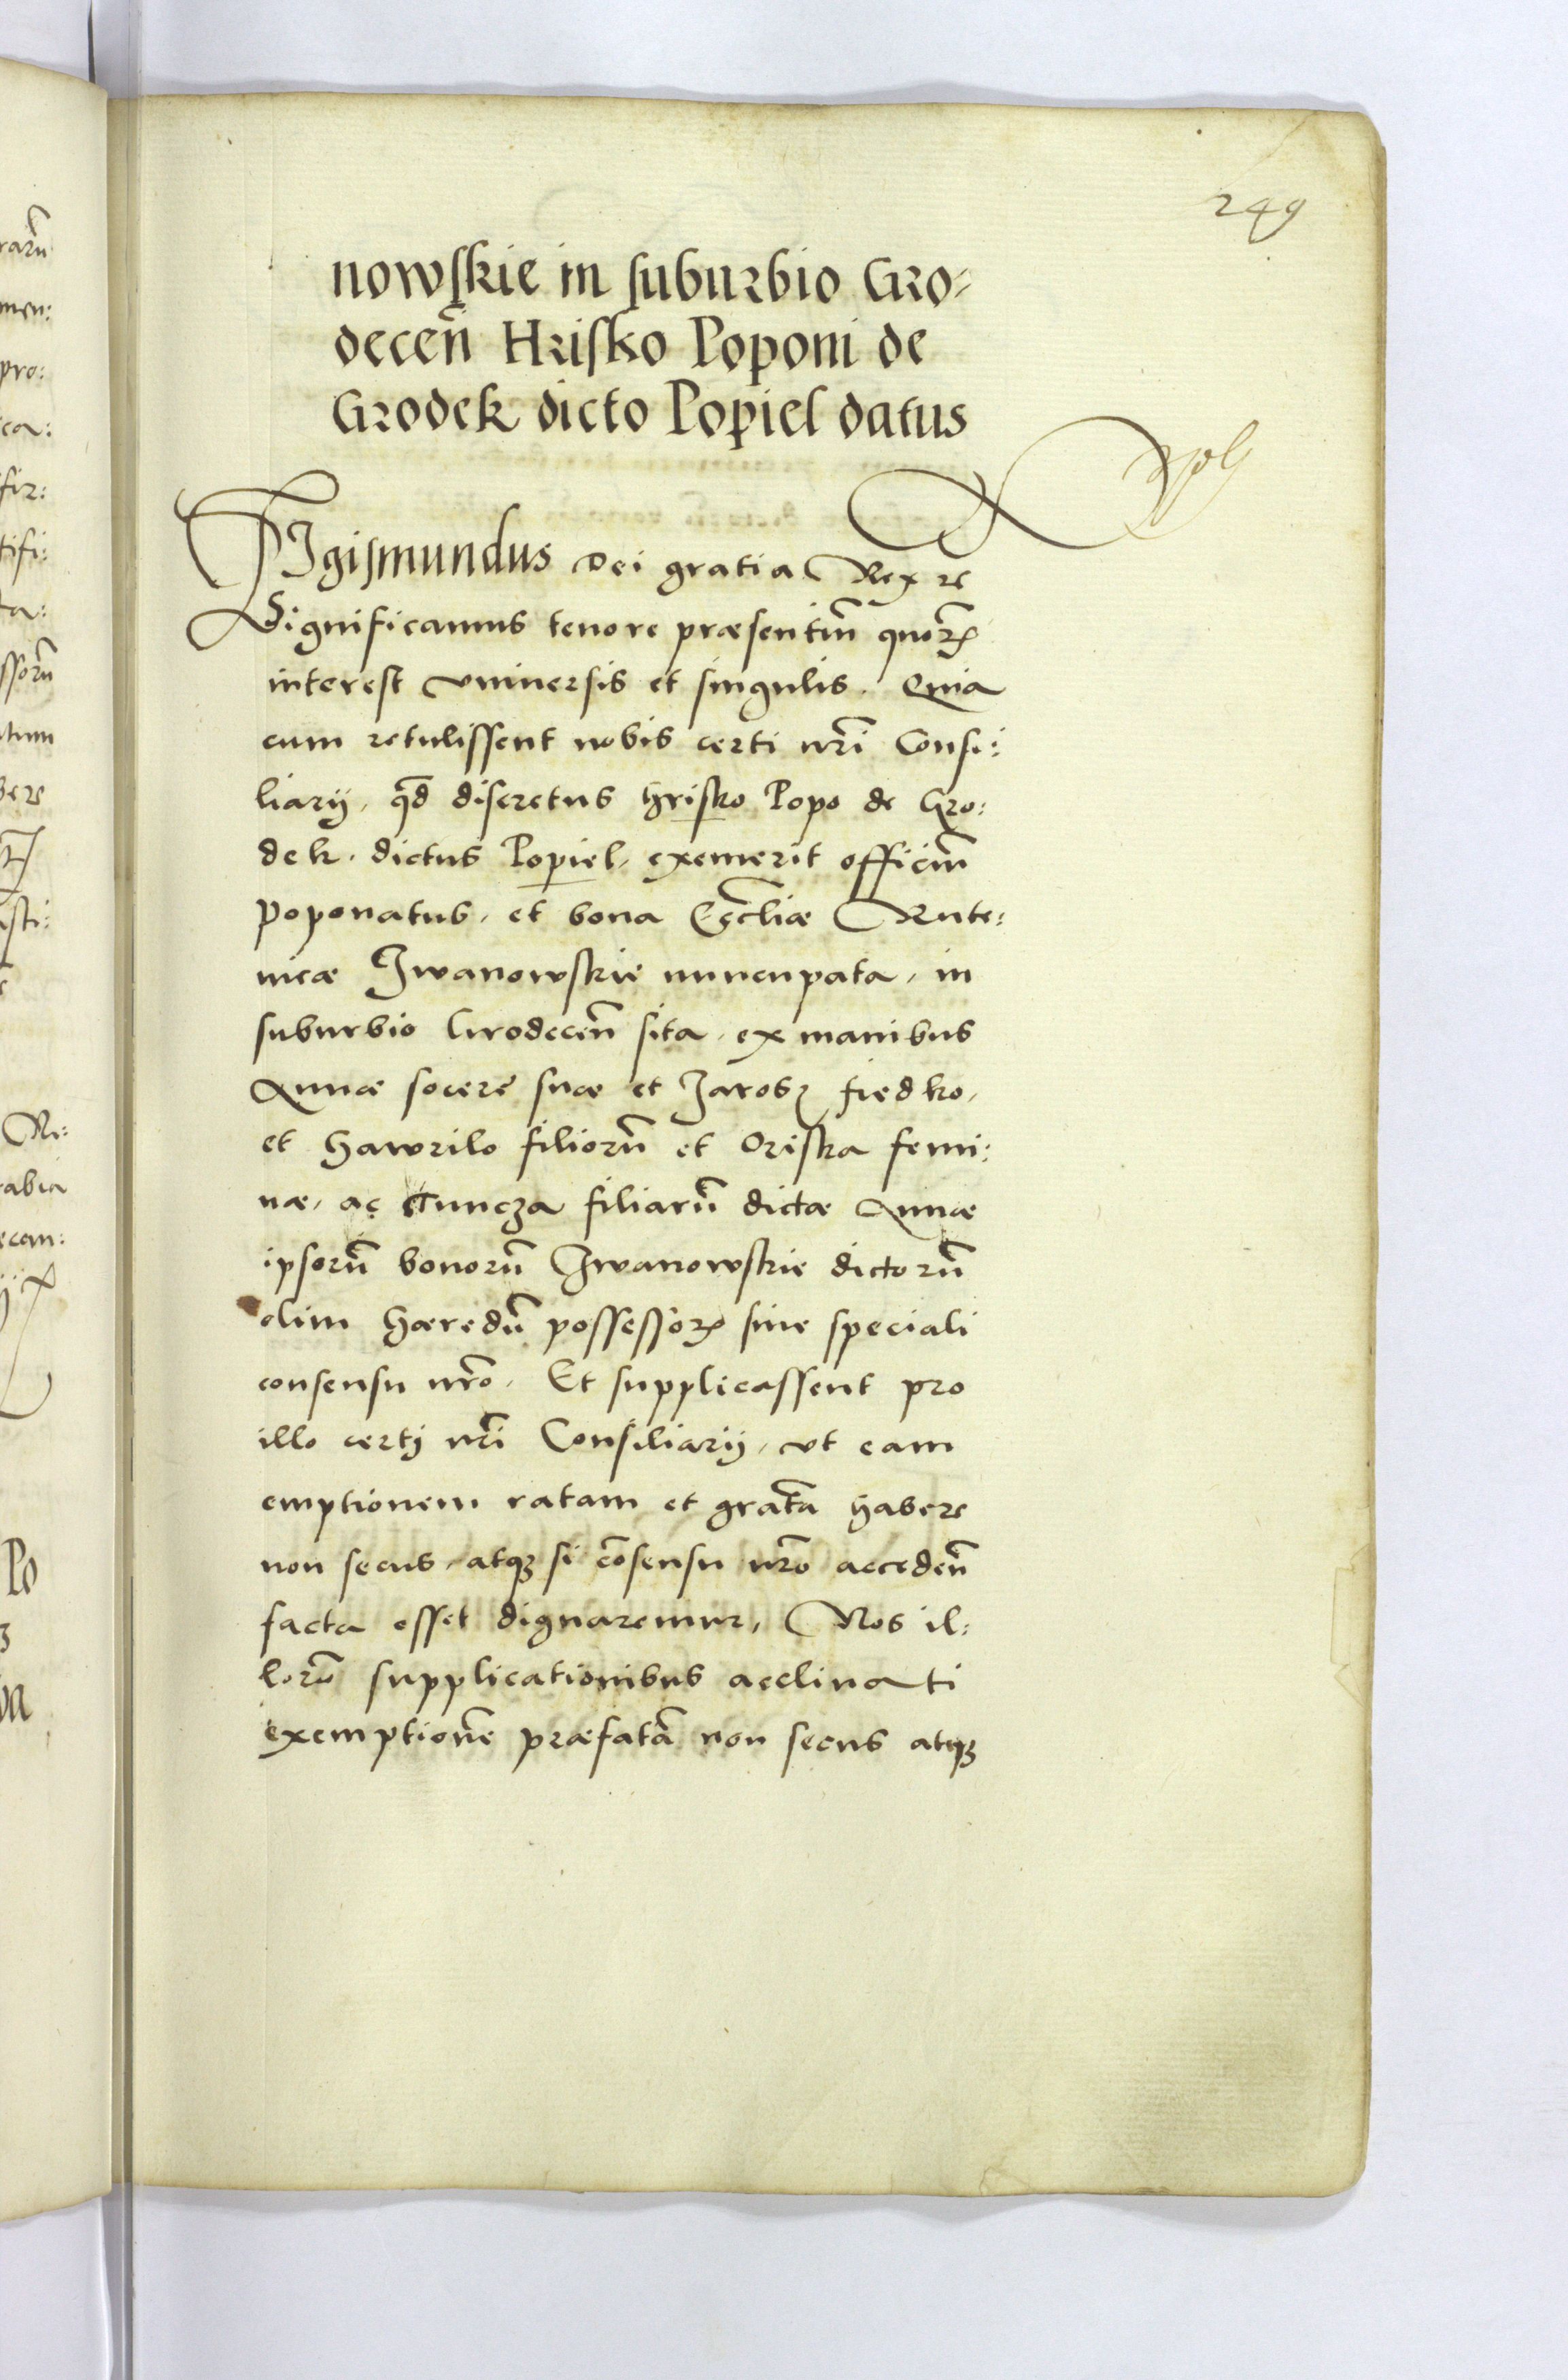 249
nowskie in suburbio Gro-
deceñ Hrisko Poponi de
Grodek dicto Popiel datus
SIgismundus Dei gratia Rex rc
Significamus tenore præsentiũ quorꝝ
interest vniuersis et singulis. Quia
cum retulissent nobis certi nr̃i Consi:
liarij, qd̃ discretus Hrisko Popo de Gro:
dek. dictus Popiel, exemerit officiũ
Poponatus, et bona Eccl̃iæ Rute:
nicæ Iwanowskie nuncupata, in
suburbio Grodeceñ sita, ex manibus
Annæ socere suæ et Jarosz fiedko,
et Hawrilo filiorũ et Oriska femi:
næ, ac Tuncza filiarũ dictæ Annæ
ipsorũ bonorũ Iwanowskie dictorũ
olim Hæredũ possessorꝝ sine speciali
consensu nr̃o. Et supplicassent pro
illo certj nr̃i Consiliarij, vt eam
emptionem ratam et gratã habere
non secus, atqꝫ si cõsensu nr̃o accedeñ
facta esset dignaremur, Nos il:
lorũ supplicationibus acclinati
exemptionẽ præfatã non secus atqꝫ